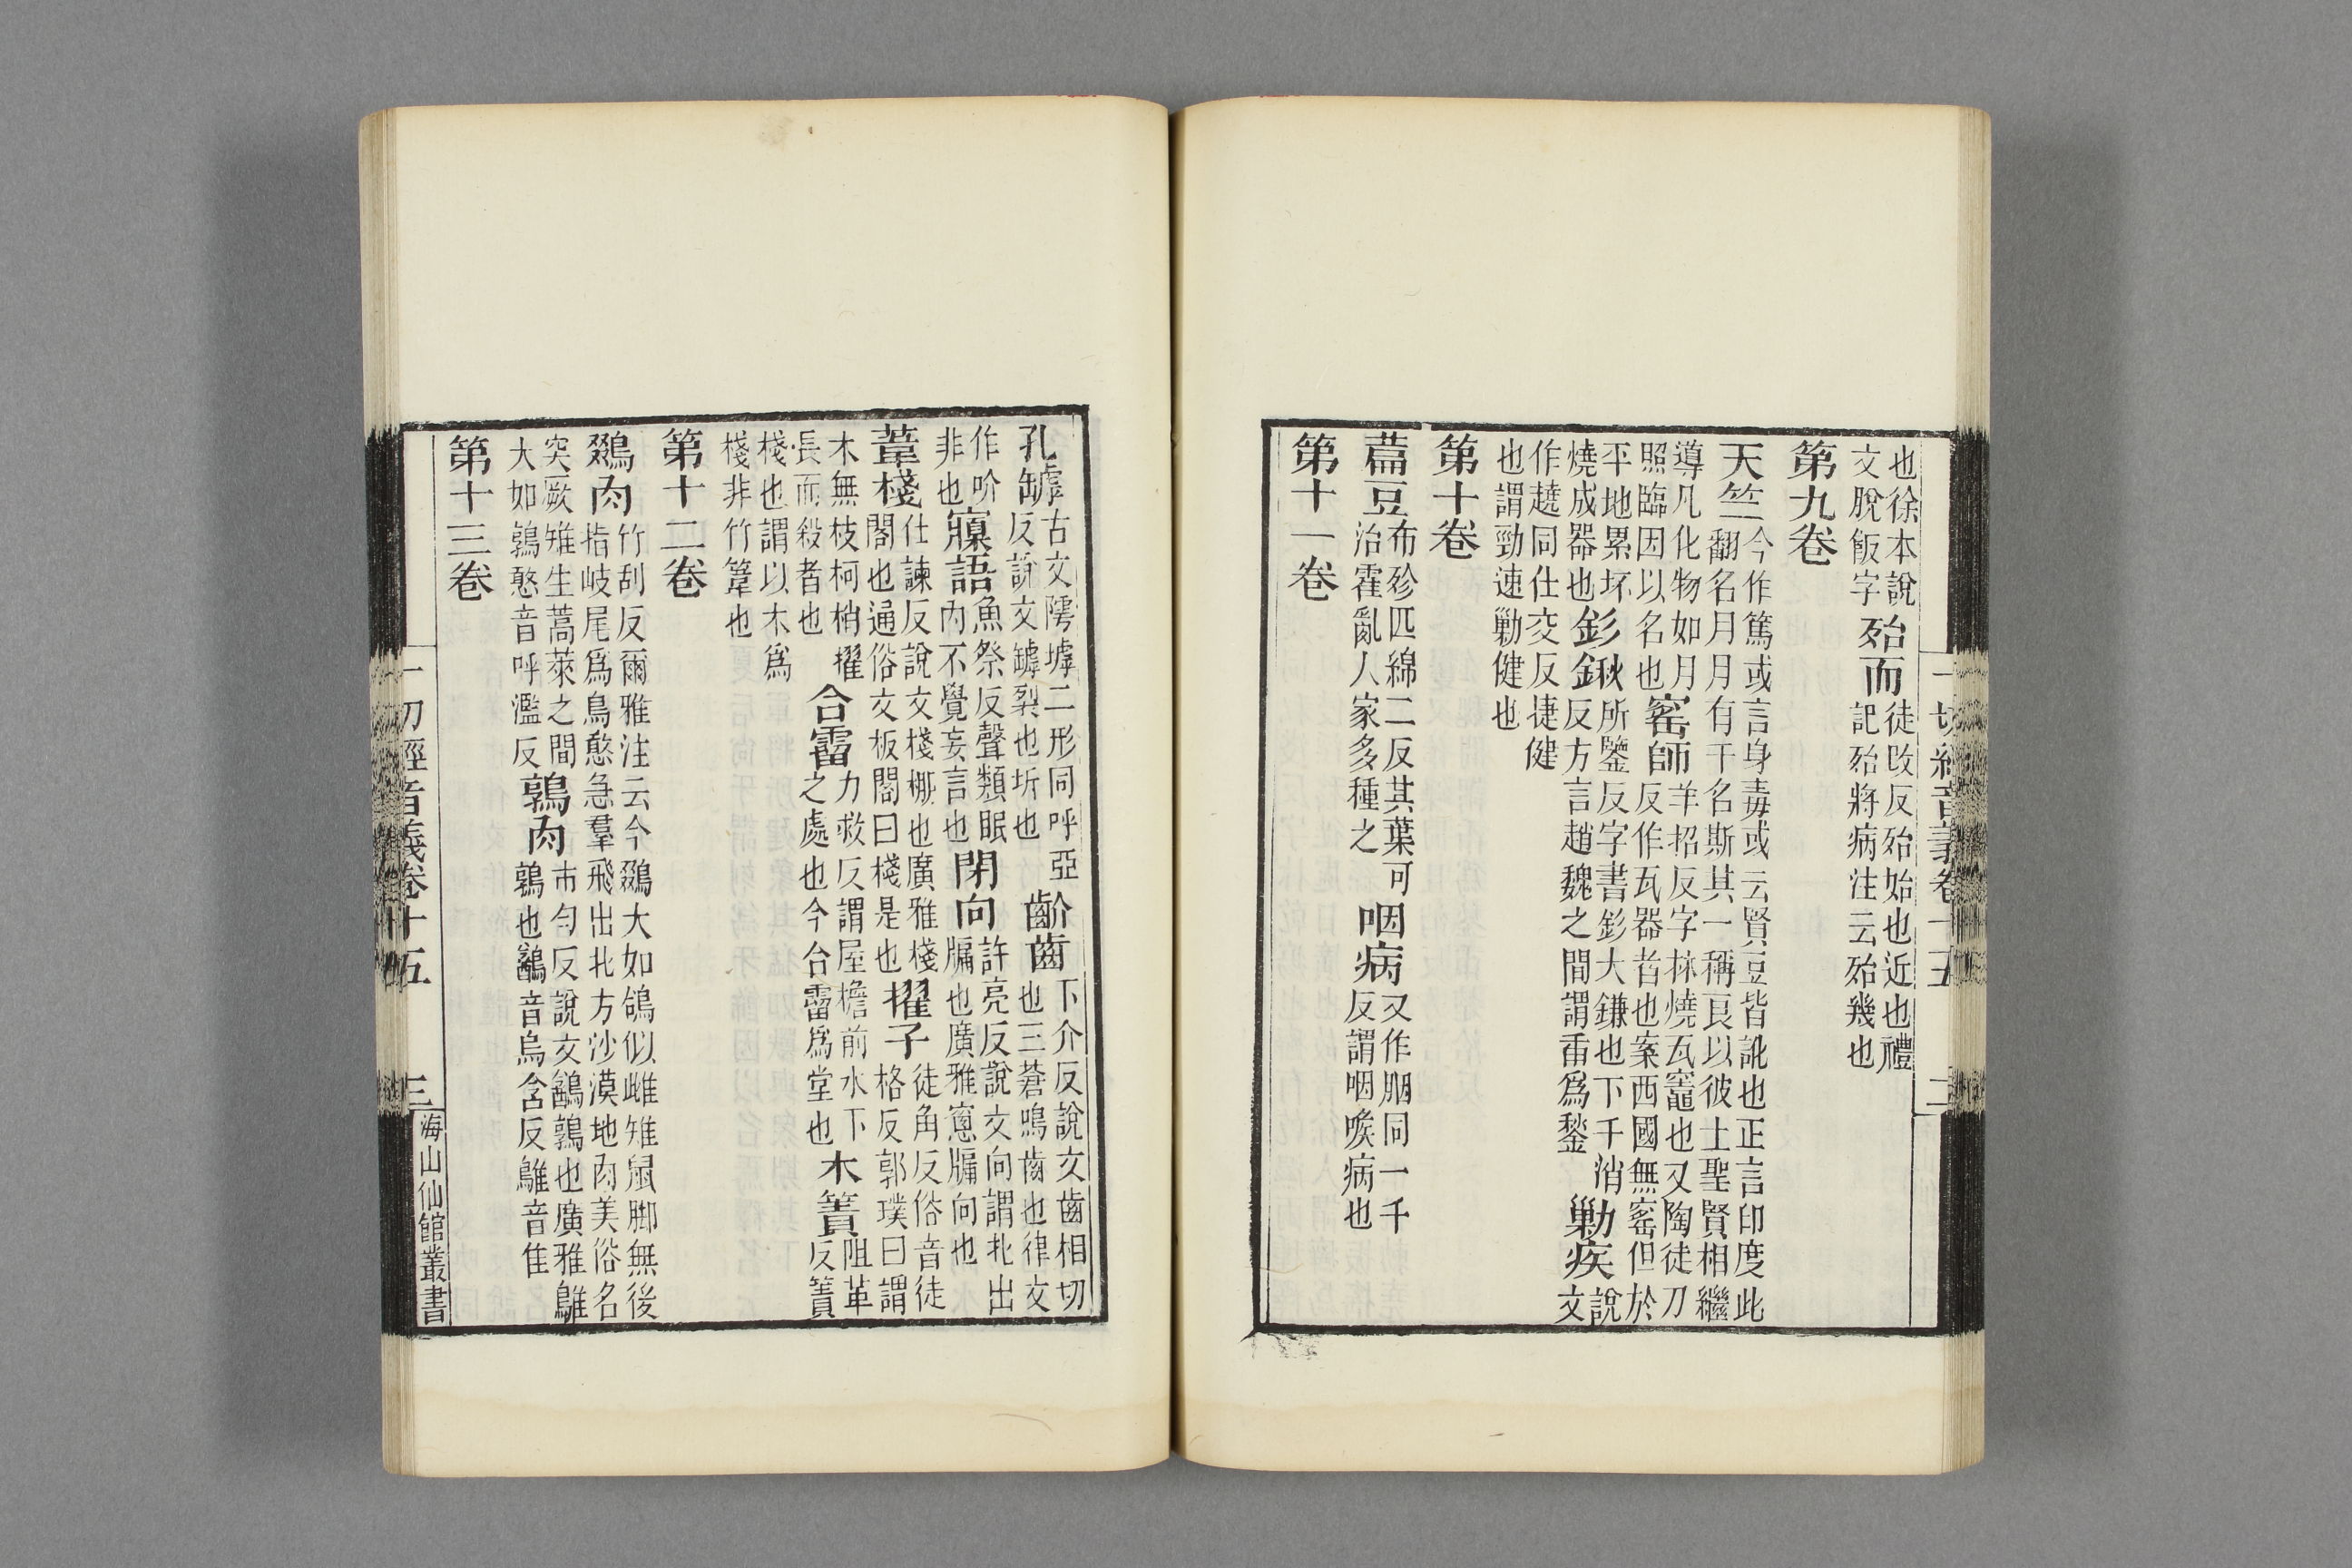 也徐本說
文脫飯字
殆而
徒改反殆始也近也禮
記殆將病注云殆幾也
第九卷
天竺
今作篤或言身毒或云賢豆皆訛也正言印度此
翻名月月有千名斯其一稱良以彼土聖賢相繼
導凡化物如月
照臨因以名也
窰師
羊招反字林燒瓦竈也又陶徒刀
反作瓦器者也案西國無窰但於
平地累坏
燒成器也
釤鍬
所鑒反字書釤大鎌也下千消
反方言趙魏之間謂臿爲鍫
勦疾
說文
作趬同仕交反捷健
也謂勁速勦健也
第十卷
藊豆
布殄匹綿二反其葉可
治霍亂人家多種之
咽病
又作胭同一千
反謂咽喉病也
第十一卷
孔罅
古文𨻶㙤二形同呼亞
反說文罅裂也坼也
齘齒
下介反說文齒相切
也三蒼鳴齒也律文
作吤
非也
寱語
魚祭反聲類眠
內不覺妄言也
閉向
許亮反說文向謂北出
牖也廣雅窻牖向也
葦棧
仕諫反說文棧棚也廣雅棧
閣也通俗文板閣曰棧是也
擢子
徒角反俗音徒
格反郭璞曰謂
木無枝柯梢擢
長而殺者也
合霤
力救反謂屋檐前水下
之處也今合霤爲堂也
木簀
阻革
反簀
棧也謂以木爲
棧非竹葦也
第十二卷
鵽肉
竹刮反爾雅注云今鵽大如鴿似雌雉鼠脚無後
指岐尾爲鳥憨急羣飛出北方沙漠地肉美俗名
突厥雉生蒿萊之間
大如鶉憨音呼濫反
鶉肉
巿勻反說文䨄鶉也廣雅鵻
鶉也䨄音烏含反鵻音隹
第十三卷
一切經音義卷十五
三
海山仙館叢書